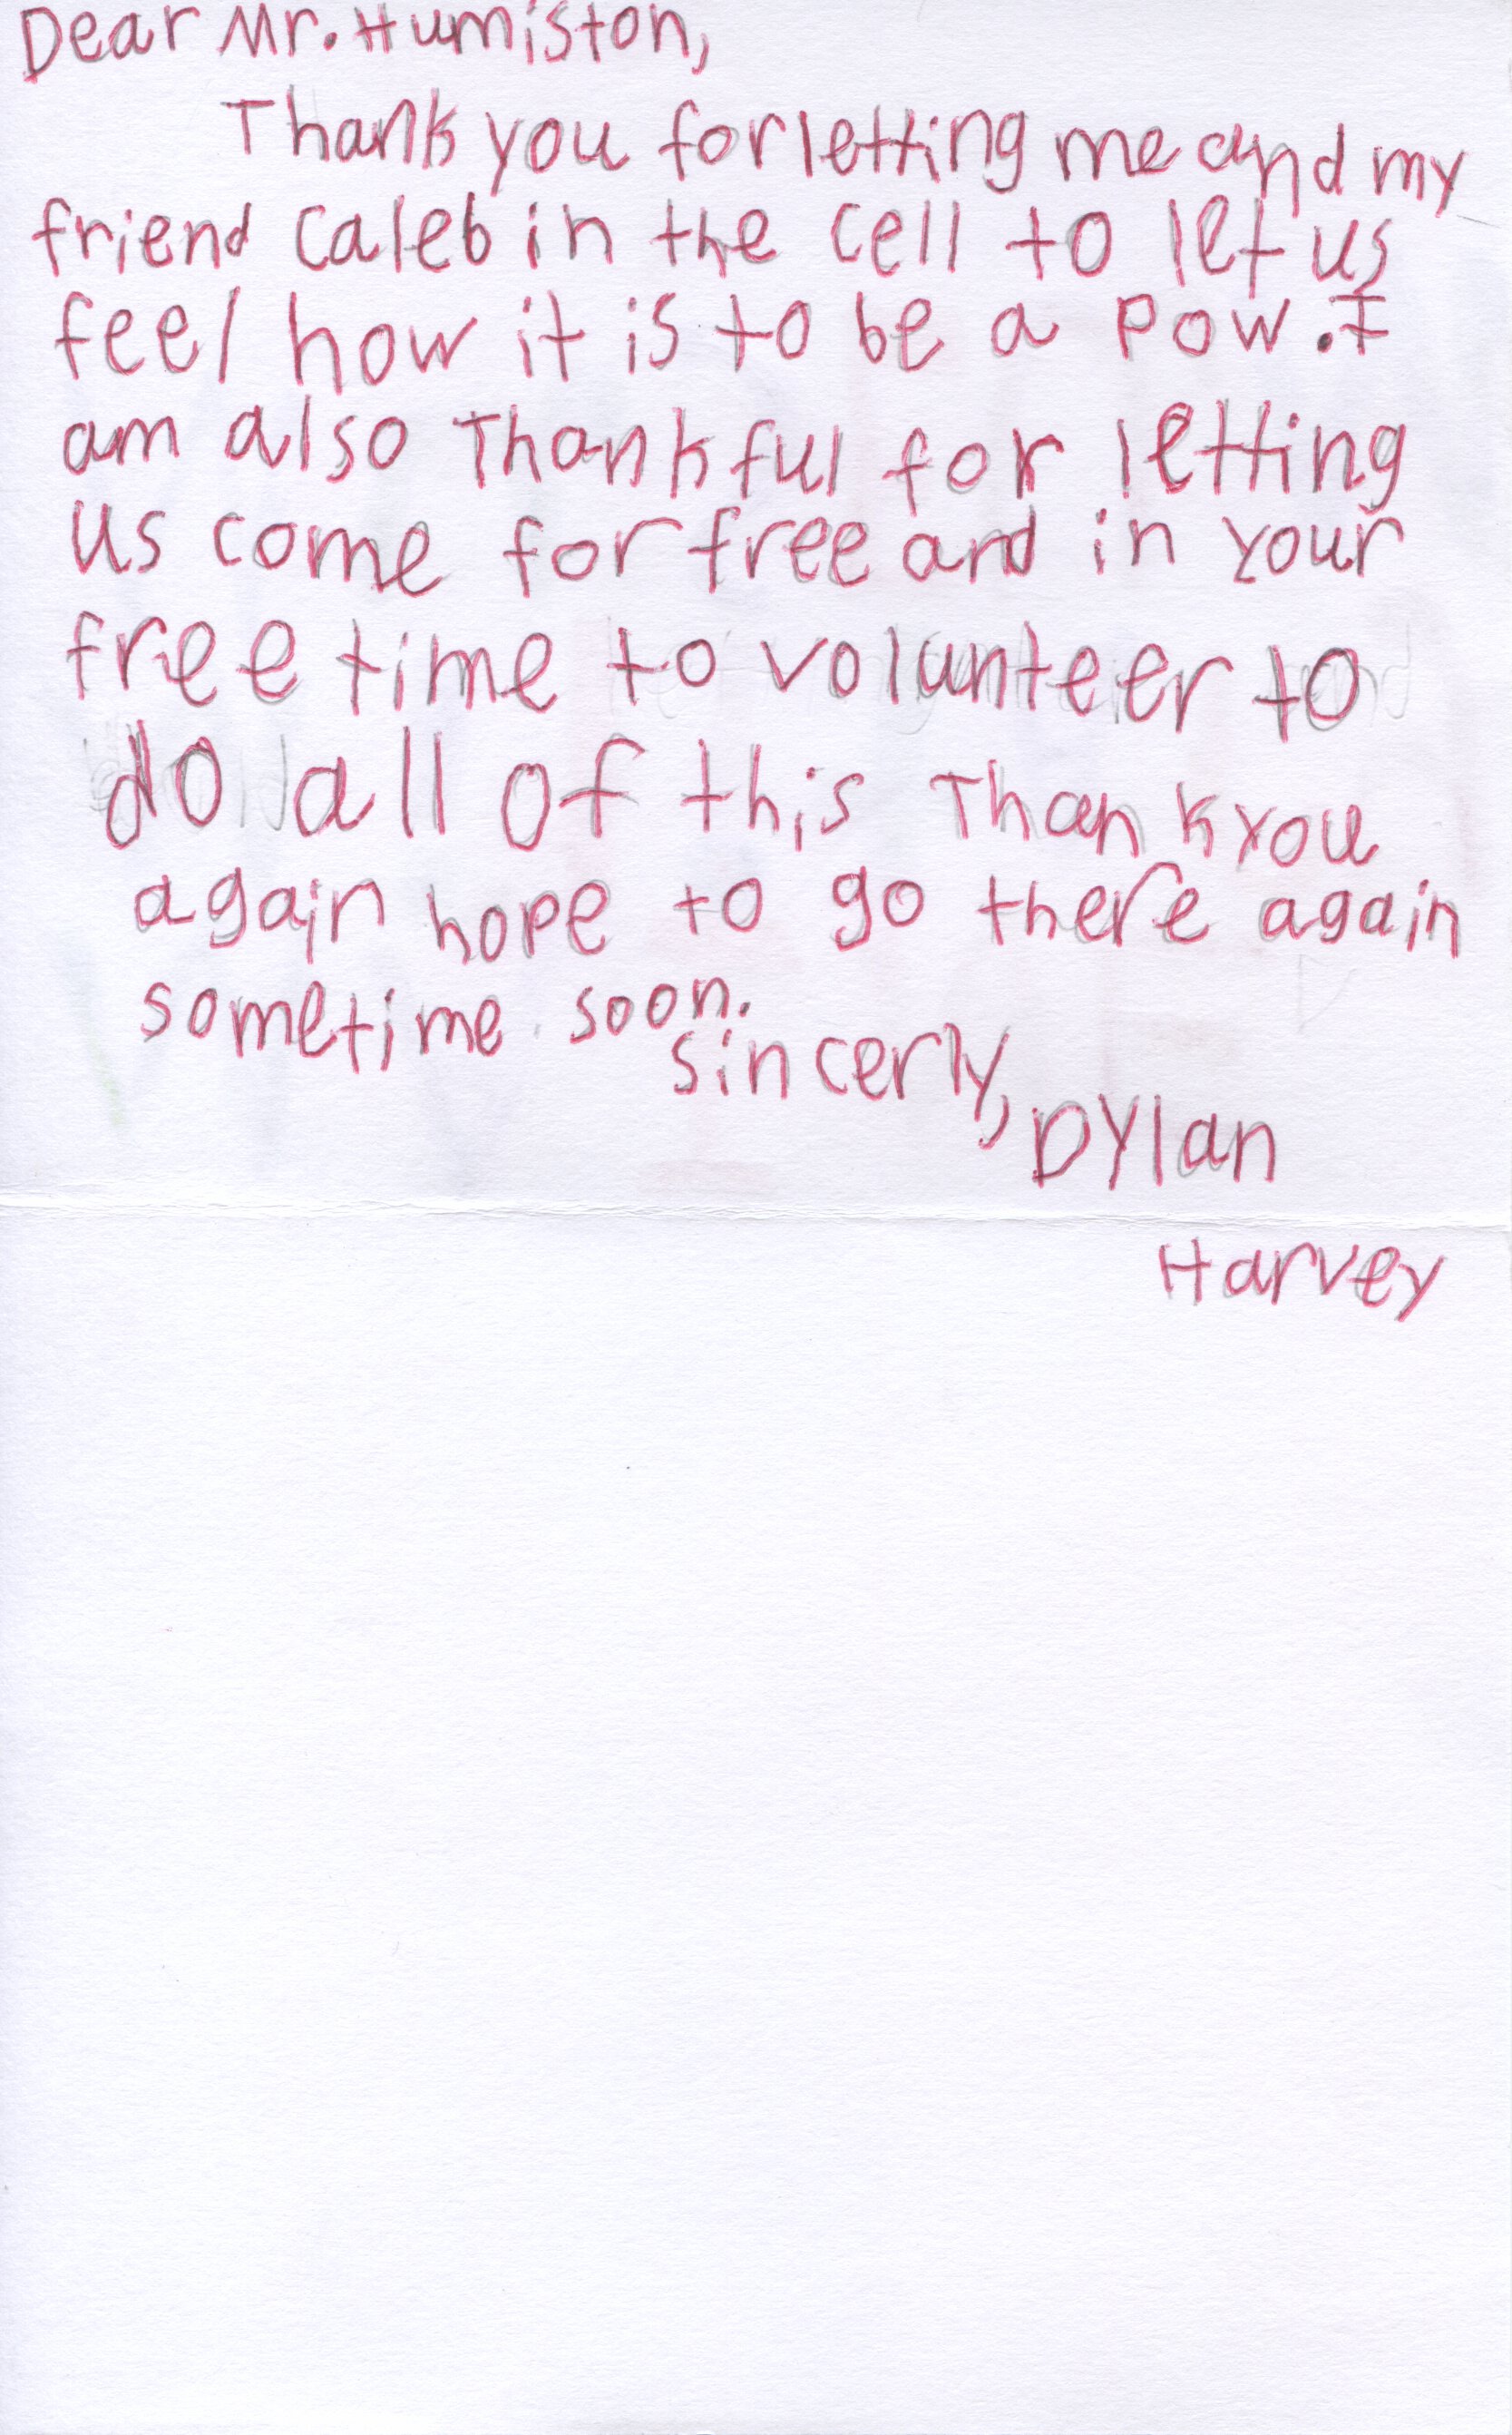 Dear Mr. Humiston,
Thank you for letting me and my
friend Caleb in the cell to let us
feel how it is to be a POW. I
am also Thankful for letting
us come for free and in your
free time to volunteer to
do all of this Thank you
again hope to go there again
sometime soon.
sincerly,
Dylan
Harvey